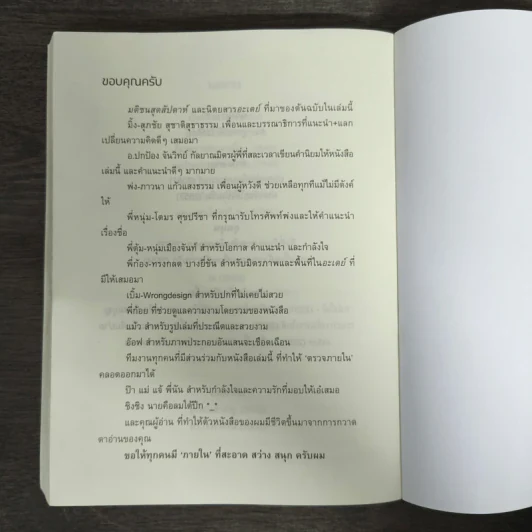 ขอบคุณครับ
มติชนสุดสัปดาห์ และนิตยสารอะเดย์ ที่มาของต้นฉบับในเล่มนี้
มิ้ง-สุภชัย สุชาติสุธาธรรม เพื่อนและบรรณาธิการที่แนะนำ+แลก
เปลี่ยนความคิดดีๆ เสมอมา
อ.ปกป้อง จันวิทย์ กัลยาณมิตรผู้พี่ที่สละเวลาเขียนคำนิยมให้หนังสือ
เล่มนี้ และคำแนะนำดีๆ มากมาย
พ่ง-ภาวนา แก้วแสงธรรม เพื่อนผู้หวังดี ช่วยเหลือทุกทีแม้ไม่มีตังค์
ให้
พี่หนุ่ม-โตมร ศุขปรีชา ที่กรุณารับโทรศัพท์พ่งและให้คำแนะนำ
เรื่องชื่อ
พี่ตุ้ม-หนุ่มเมืองจันท์ สำหรับโอกาส คำแนะนำ และกำลังใจ
พี่ก้อง-ทรงกลด บางยี่ขัน สำหรับมิตรภาพและพื้นที่ในอะเดย์ ที่
มีให้เสมอมา
เบิ้ม-Wrongdesign สำหรับปกที่ไม่เคยไม่สวย
พี่ก้อย ที่ช่วยดูแลความงามโดยรวมของหนังสือ
แม้ว สำหรับรูปเล่มที่ประณีตและสวยงาม
อ๊อฟ สำหรับภาพประกอบอันแสนจะเชือดเฉือน
ทีมงานทุกคนที่มีส่วนร่วมกับหนังสือเล่มนี้ ที่ทำให้ 'ตรวจภายใน'
คลอดออกมาได้
ป๊า แม่ แจ้ พี่นัน สำหรับกำลังใจและความรักที่มอบให้เอ๋เสมอ
ชิงชิง นายคือลมใต้ปีก ^_^
และคุณผู้อ่าน ที่ทำให้ตัวหนังสือของผมมีชีวิตขึ้นมาจากการกวาด
ตาอ่านของคุณ
ขอให้ทุกคนมี 'ภายใน' ที่สะอาด สว่าง สนุก ครับผม